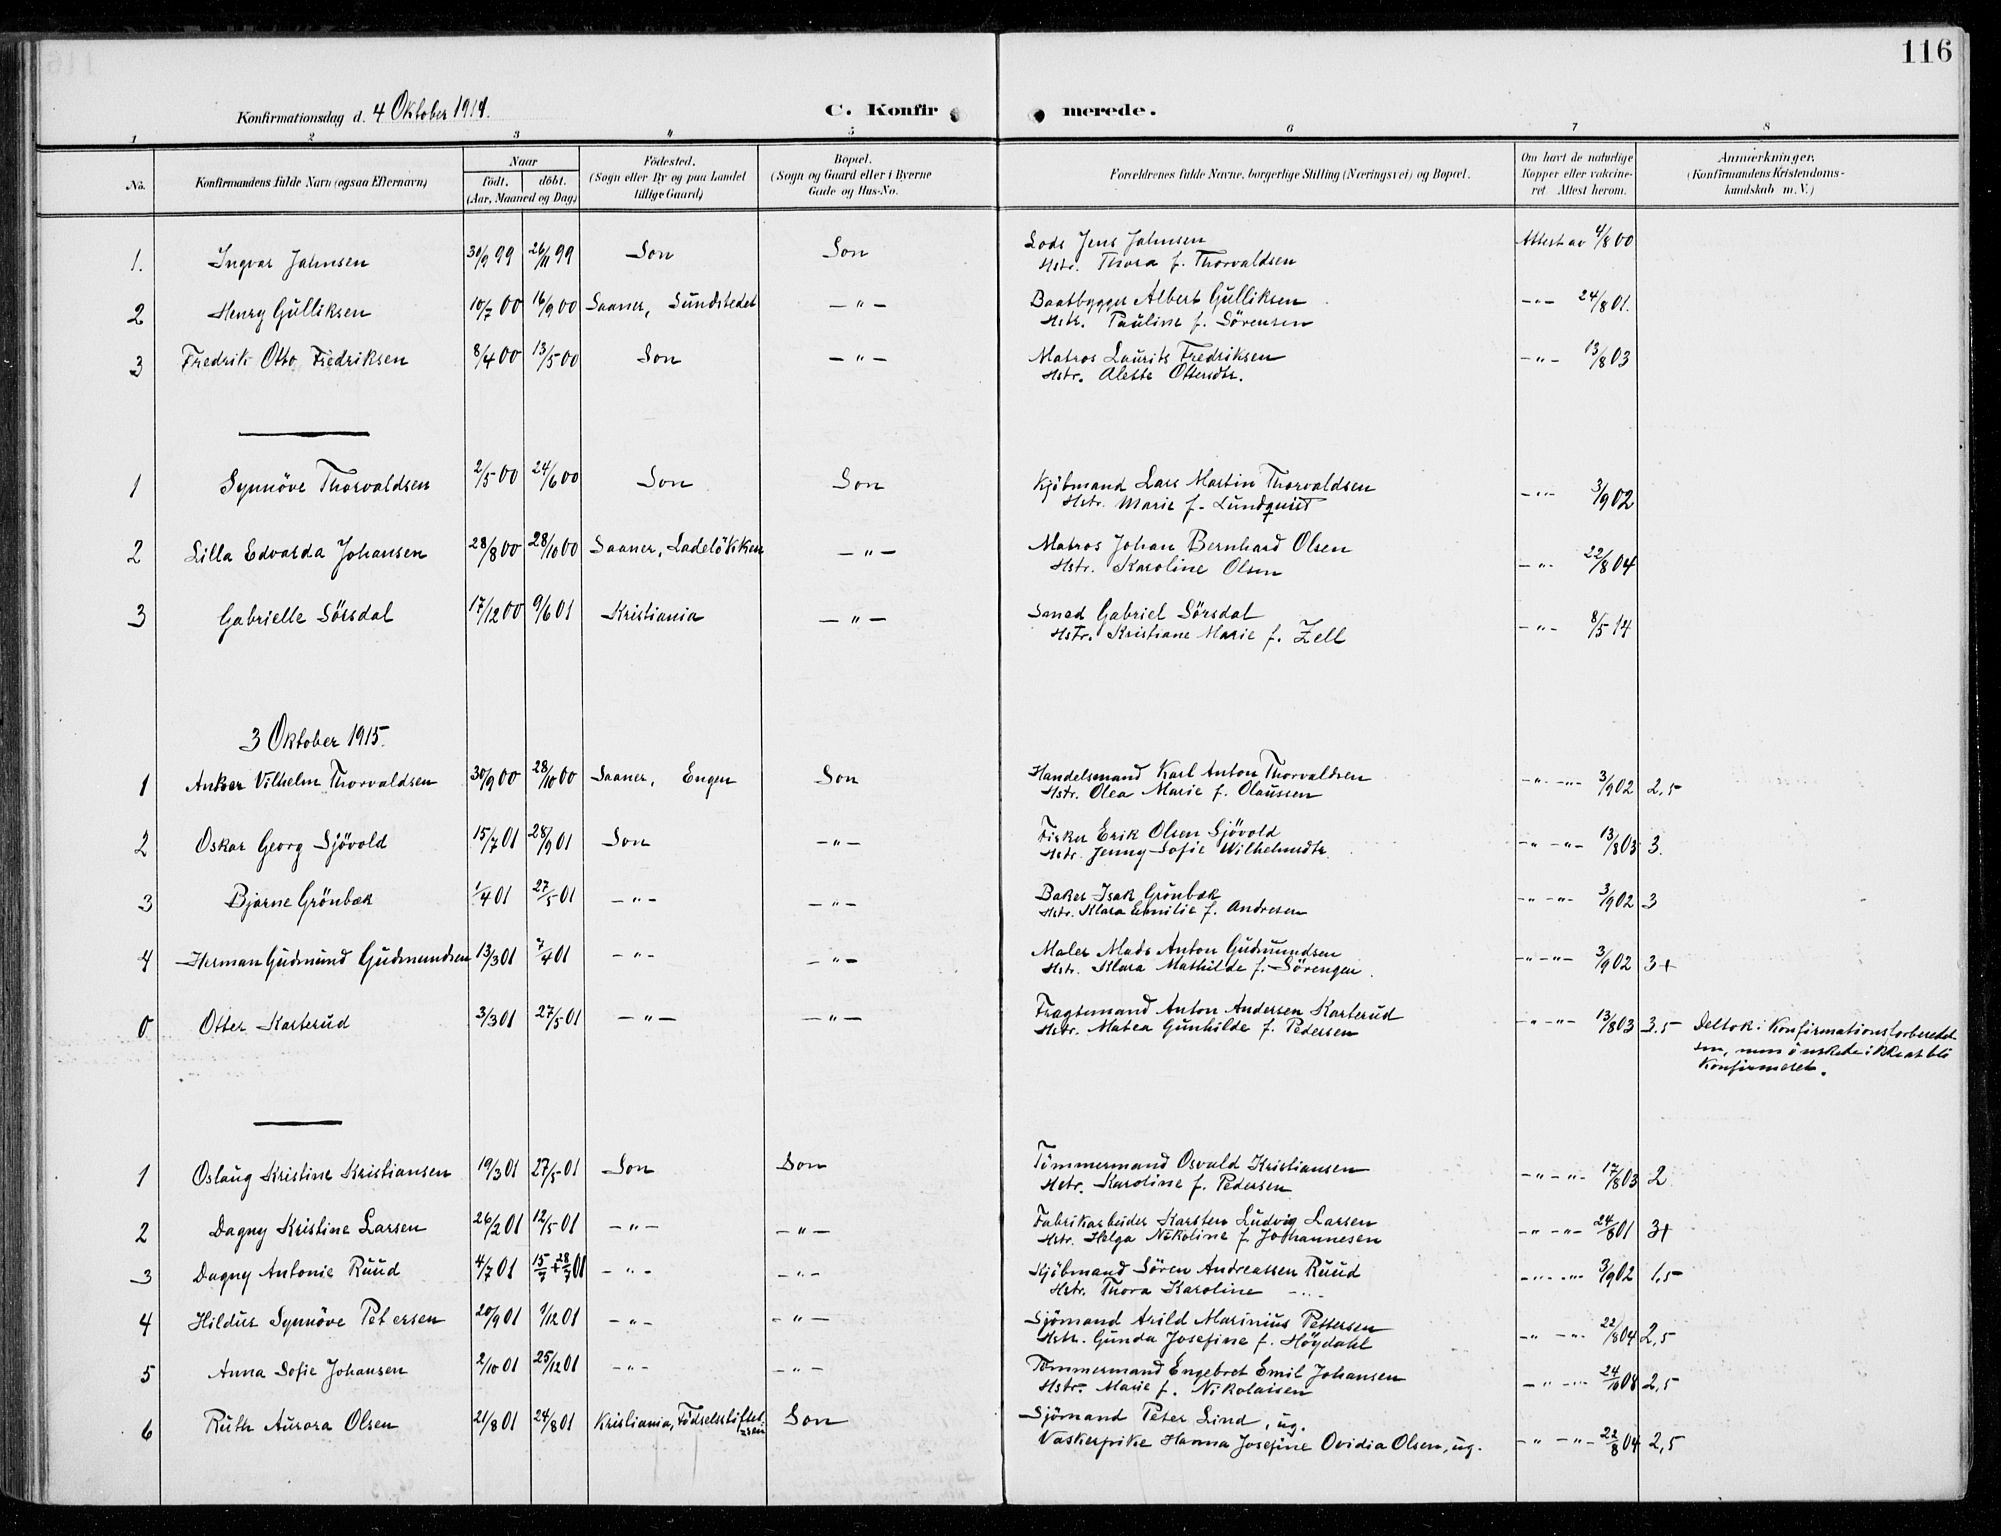 116
Konfirmationsdag d. 4 Oktober 1914. C. Konfirmerede.
1 2 3 4 5 6 7 8
No. Konfirmandens fulde Navn (ogsaa Efternavn) Naar födt. döbt. (Aar, Maaned og Dag) Födested. (Sogn eller By og paa Landet tillige Gaard) Bopæl. (Sogn og Gaard eller i Byerne Gade og Hus-No. Forældrenes fulde Navne, borgerlige Stilling (Næringsvei) og Bopæl. Om havt de naturlige Kopper eller vakcineret. Attest herom. Anmærkninger. (Konfirmandens Kristendomskundskab m. V.)
1. Ingvar Jahnsen 30/9 99 26/11 99 Son Son Lods Jens Jahnsen Attest av 4/8 00
Hstr. Thora f. Thorvaldsen
2 Henry Gulliksen 10/7 00 16/9 00 Saaner, Sundstedet — " — Baatbygger Albert Gulliksen — " — 24/8 01.
Hstr. Pauline f. Sörensen
3 Fredrik Otto Fredriksen 8/4 00 13/5 00 Son — " — Matros Laurits Fredriksen — " — 13/8 03
Hstr. Alette Ottersdtr.
1 Synnöve Thorvaldsen 2/5 00 24/6 00 Son Son Kjöbmand Lars Martin Thorvaldsen — " — 3/9 02
Hstr. Marie f. Lundquist
2 Lilla Edvarda Johansen 28/8 00 28/10 00 Saaner, Ladelökken — " — Matros Johan Bernhard Olsen — " — 22/8 04
Hstr. Karoline Olsen
3 Gabrielle Sörsdal 17/12 00 9/6 01 Kristiania — " — Gabriel Sörsdal — " — 8/5 14
Hstr. Kristiane Marie f. Zell
3 Oktober 1915.
1 Anker Vilhelm Thorvaldsen 30/9 00 28/10 00 Saaner, Engen Son Handelsmand Karl Anton Thorvaldsen — " — " — 3/9 02 2,5
Hstr. Olea Marie f. Olaussen
2 Oskar Georg Sjövold 15/7 01 28/9 01 Son — " — Fisker Erik Olsen Sjövold — " — " — 13/8 03 3.
Hstr. Jenny Sofie Wilhelmsdtr.
3 Bjarne Grönbæk 1/4 01 27/5 01 — " — — " — Baker Isak Grönbæk — " — " — 3/9 02 3
Hstr. Klara Emilie f. Andresen
4 Herman Gudmund Gudmundsen 13/3 01 7/4 01 — " — — " — Maler Mads Anton Gudmundsen — " — " — 3/9 02 3+
Hstr. Klara Mathilde f. Sörengen.
0 Otter Karterud 3/3 01 27/5 01 — " — — " — Fragtemand Anton Andersen Karterud — " — " — 13/8 03 3.5 Deltok i Konfirmationsforberedel-
Hstr. Matea Gunhilde f. Pedersen sen, men önskede ikke at bli
Konfirmeret.
1 Oslaug Kristine Kristiansen 19/3 01 27/5 01 Son Son Tömmermand Osvald Kristiansen — " — " — 17/8 03 2
Hstr. Karoline f. Pedersen
2 Dagny Kristine Larsen 26/2 01 12/5 01 — " — — " — Fabrikarbeider Karsten Ludvig Larsen — " — " — 24/8 01 3+
Hstr. Helga Nikoline f. Johannesen
3 Dagny Antonie Ruud 4/7 01 15/7 + 28/7 01 — " — — " — Kjöbmand Sören Andreassen Ruud — " — " — 3/9 02 1,5
Hstr. Thora Karoline — " —
4 Hildur Synnöve Petersen 20/9 01 1/12 01 — " — — " — Sjömand Arild Marinius Pettersen — " — " — 22/8 04 2,5
Hstr. Gunda Josefine f. Höydahl
5 Anna Sofie Johansen 2/10 01 25/12 01 — " — — " — Tömmermand Engebret Emil Johansen — " — " — 2,5
Hstr. Marie f. Nikolaisen
6 Ruth Aurora Olsen 21/8 01 24/8 01 Kristiania, Födselsstiftelsen Son Sjömand Peter Lind, ug. — " — " — 22/8 04 2,5
Vaskerpike Hanna Josefine Ovidia Olsen, ug.